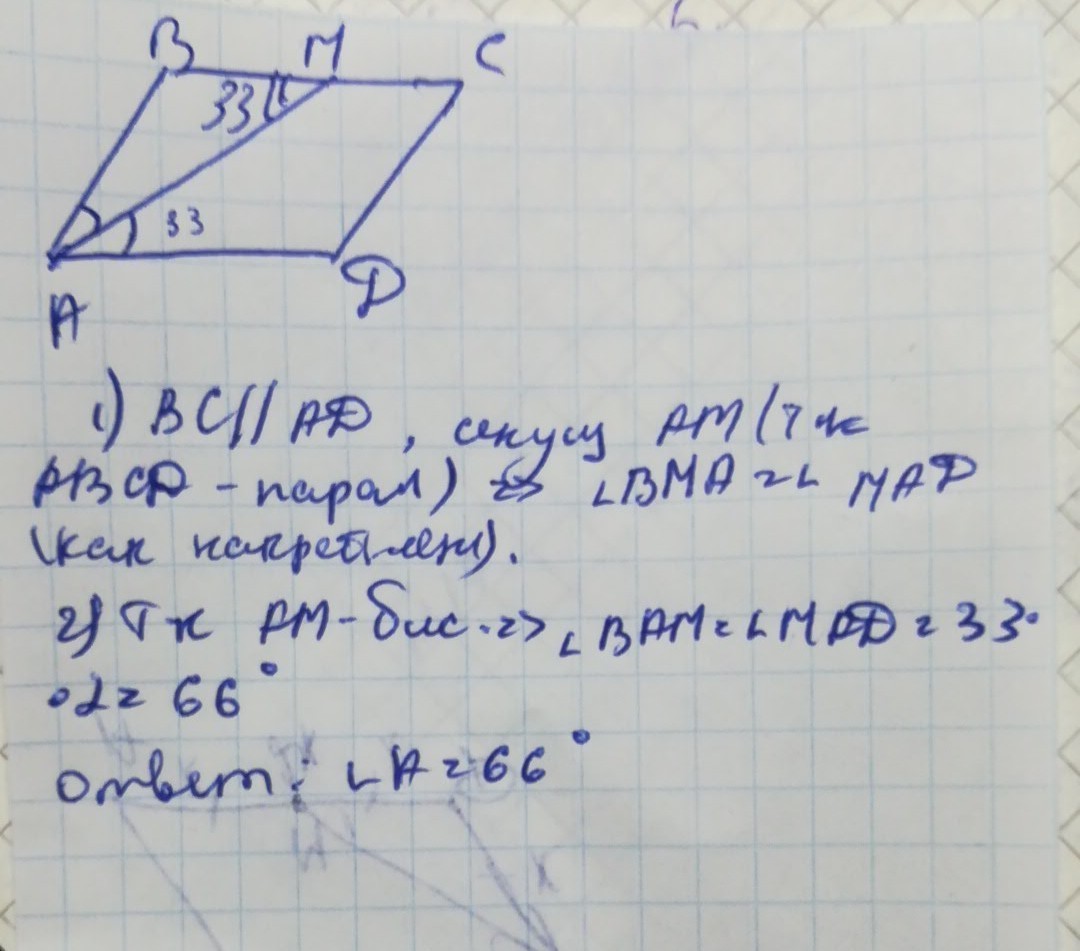 B M C
33
33
A D
1) BC || AD, секущ AM (т к
ABCD - парал) => ∠BMA = ∠ MAD
(как накрест лежи).
2) Т к AM - бис. => ∠BAM = ∠MAD = 33°
•2 = 66°
Ответ: ∠A = 66°